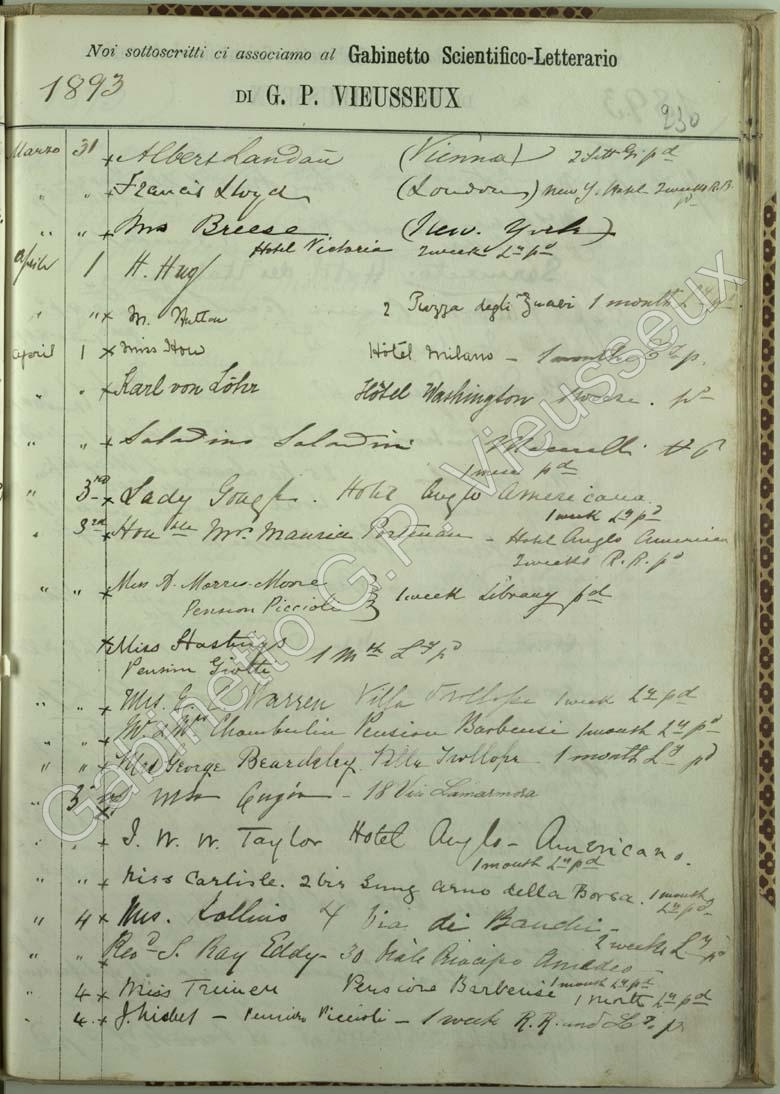 Noi sottoscritti ci associamo al Gabinetto Scientifico-Letterario
1893
DI G. P. VIEUSSEUX
230
Marzo 31 x Albert Landau (Vienna) 2 pd
" " x Francis Lloyd (London) New Y. Hotel 2 weeks R.R. pd
" " x Mrs Breese (New. York)
Hotel Victoria 2 weeks Ly pd
Aprile 1 H. Hug
" " x M. Hutton 2 Piazza degli Zuavi 1 month Ly pd
April 1 x Miss How Hôtel Milano - 1 month Ly p.
" " x Karl von Löhr Hôtel Washington
" " x Saladino Saladini
1 week pd
" 3rd x Lady Gough. Hotel Anglo Americana
1 week Ly pd
" 3rd x Honble Mrs Maurice Portman - Hotel Anglo American
2 weeks R.R. pd
" " x Miss A. Morris-Moore
Pension Piccioli } 1 week Library pd
x Miss Hastings
Pension Giotti 1 Mth Ly pd
" " x Mrs. Warren Villa Trollope 1 week Ly pd
" " x Mr & Mrs Chamberlin Pension Barbensi 1 month Ly pd
" " x Mrs George Beardsley. Villa Trollope - 1 month Ly pd
" 3rd x - 18 Via Lamarmora
" " x J. W. W. Taylor Hotel Anglo-Americano.
1 month Ly pd
" " x Miss Carlisle. 2 bis Lung arno della Borsa. 1 month
Ly pd
" 4 x Mrs. Collins 4 Via de Banchi -
2 weeks Ly pd
" " x Revd S. Ray Eddy - 30 Viale Principe Amedeo -
1 month Ly pd
" 4 x Miss Pensione Barbensi 1 month Ly pd
" 4. x Pension Piccioli - 1 week R.R. and Ly p.
Gabinetto G.P. Vieusseux